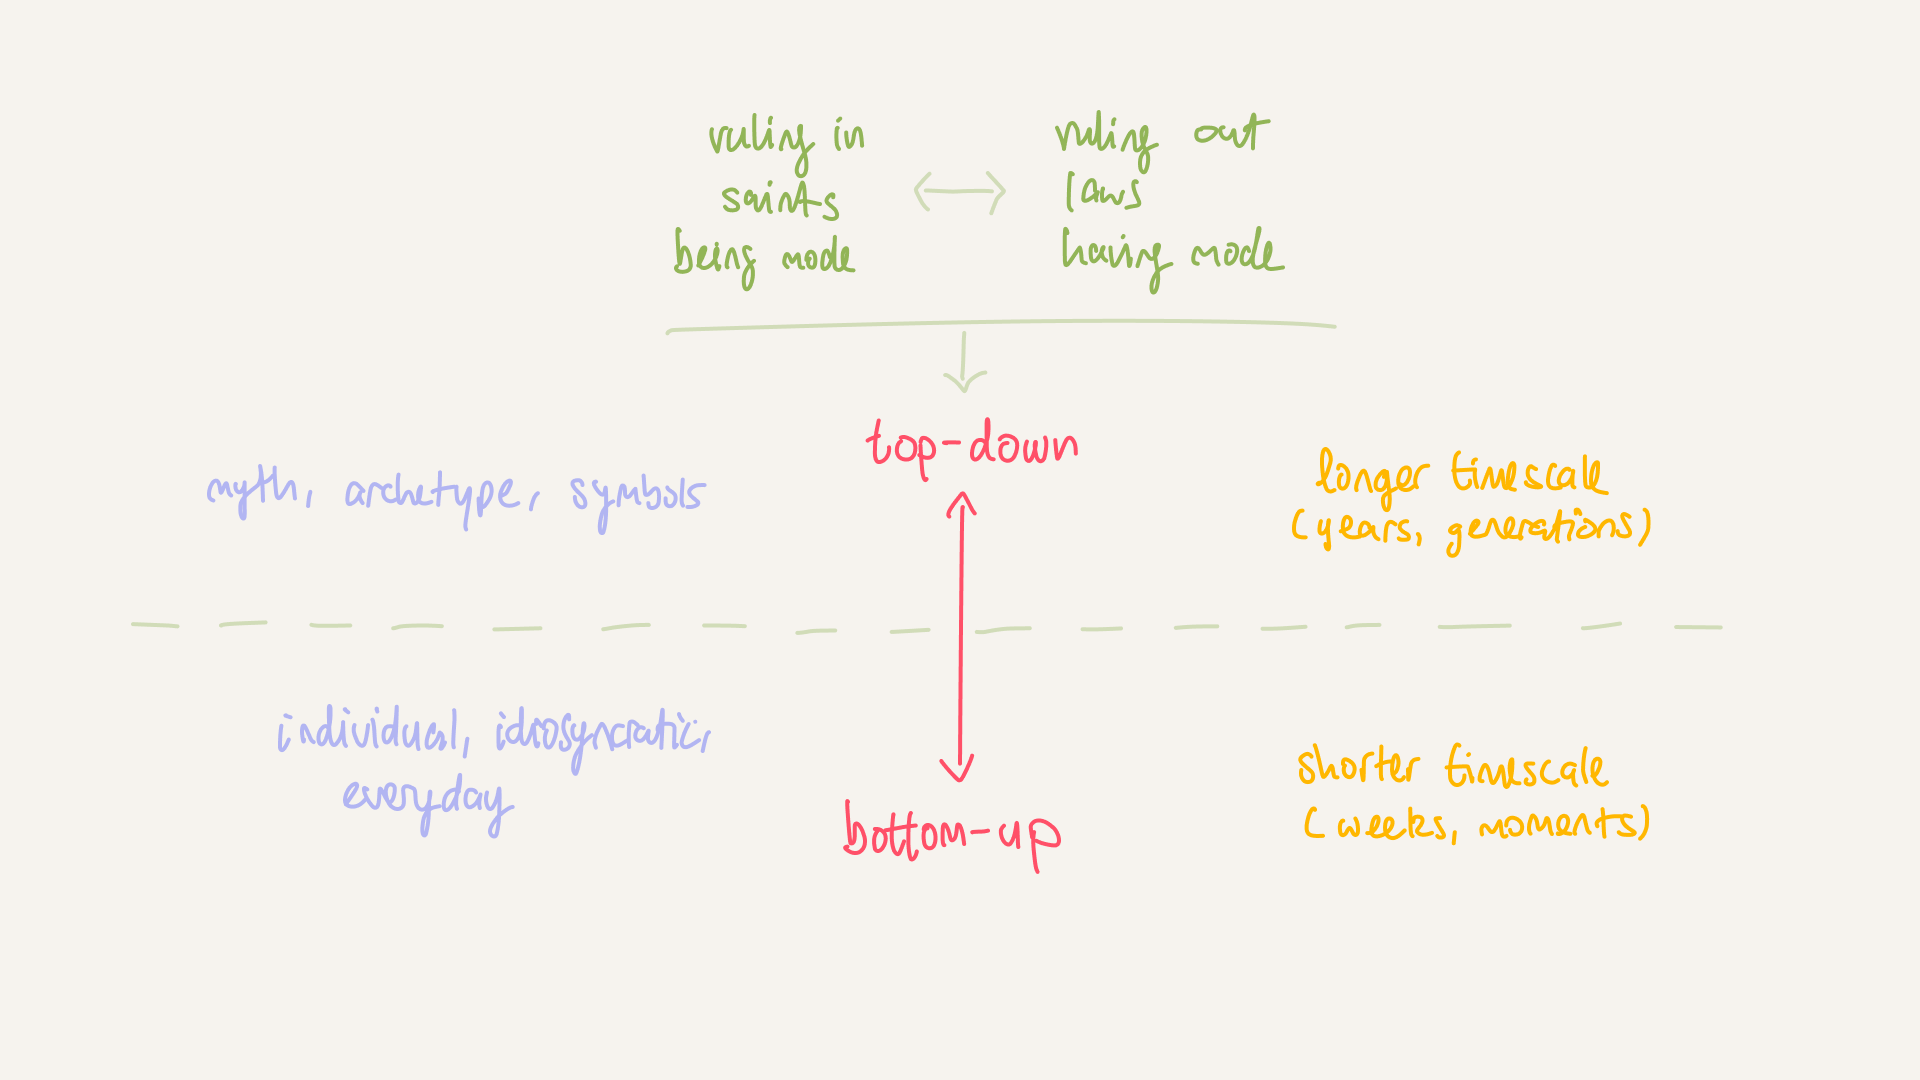 ruling in
saints
being mode
ruling out
laws
having mode
top-down
myth, archetype, symbols
longer timescale
(years, generations)
individual, idiosyncratic,
everyday
shorter timescale
(weeks, moments)
bottom-up